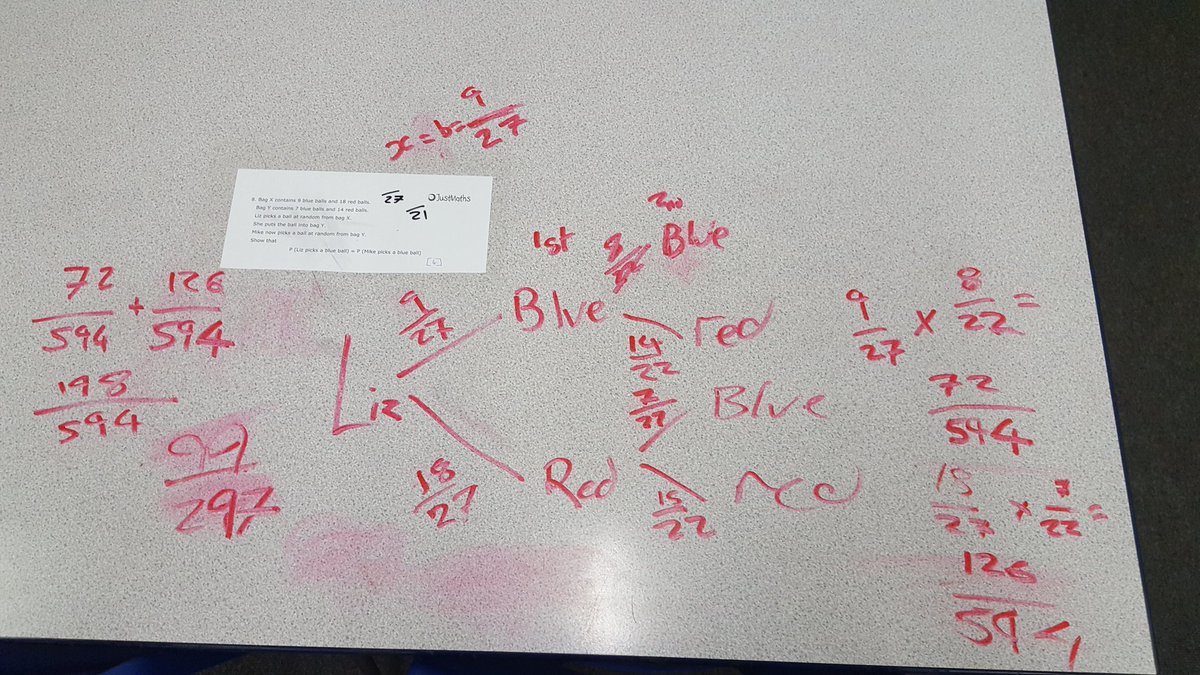 x = b = 9/27
8. Bag X contains 9 blue balls and 18 red balls.
Bag Y contains 7 blue balls and 14 red balls.
Liz picks a ball at random from bag X.
She puts the ball into bag Y.
Mike now picks a ball at random from bag Y.
Show that
P (Liz picks a blue ball) = P (Mike picks a blue ball)
[6]
/27
/21
JustMaths
72/594 + 126/594
198/594
99/297
Liz
1st
2nd
9/27
Blue
8/22
Blue
14/22
red
18/27
Red
7/22
Blue
15/22
red
9/27 x 8/22 =
72/594
18/27 x 7/22 =
126/594